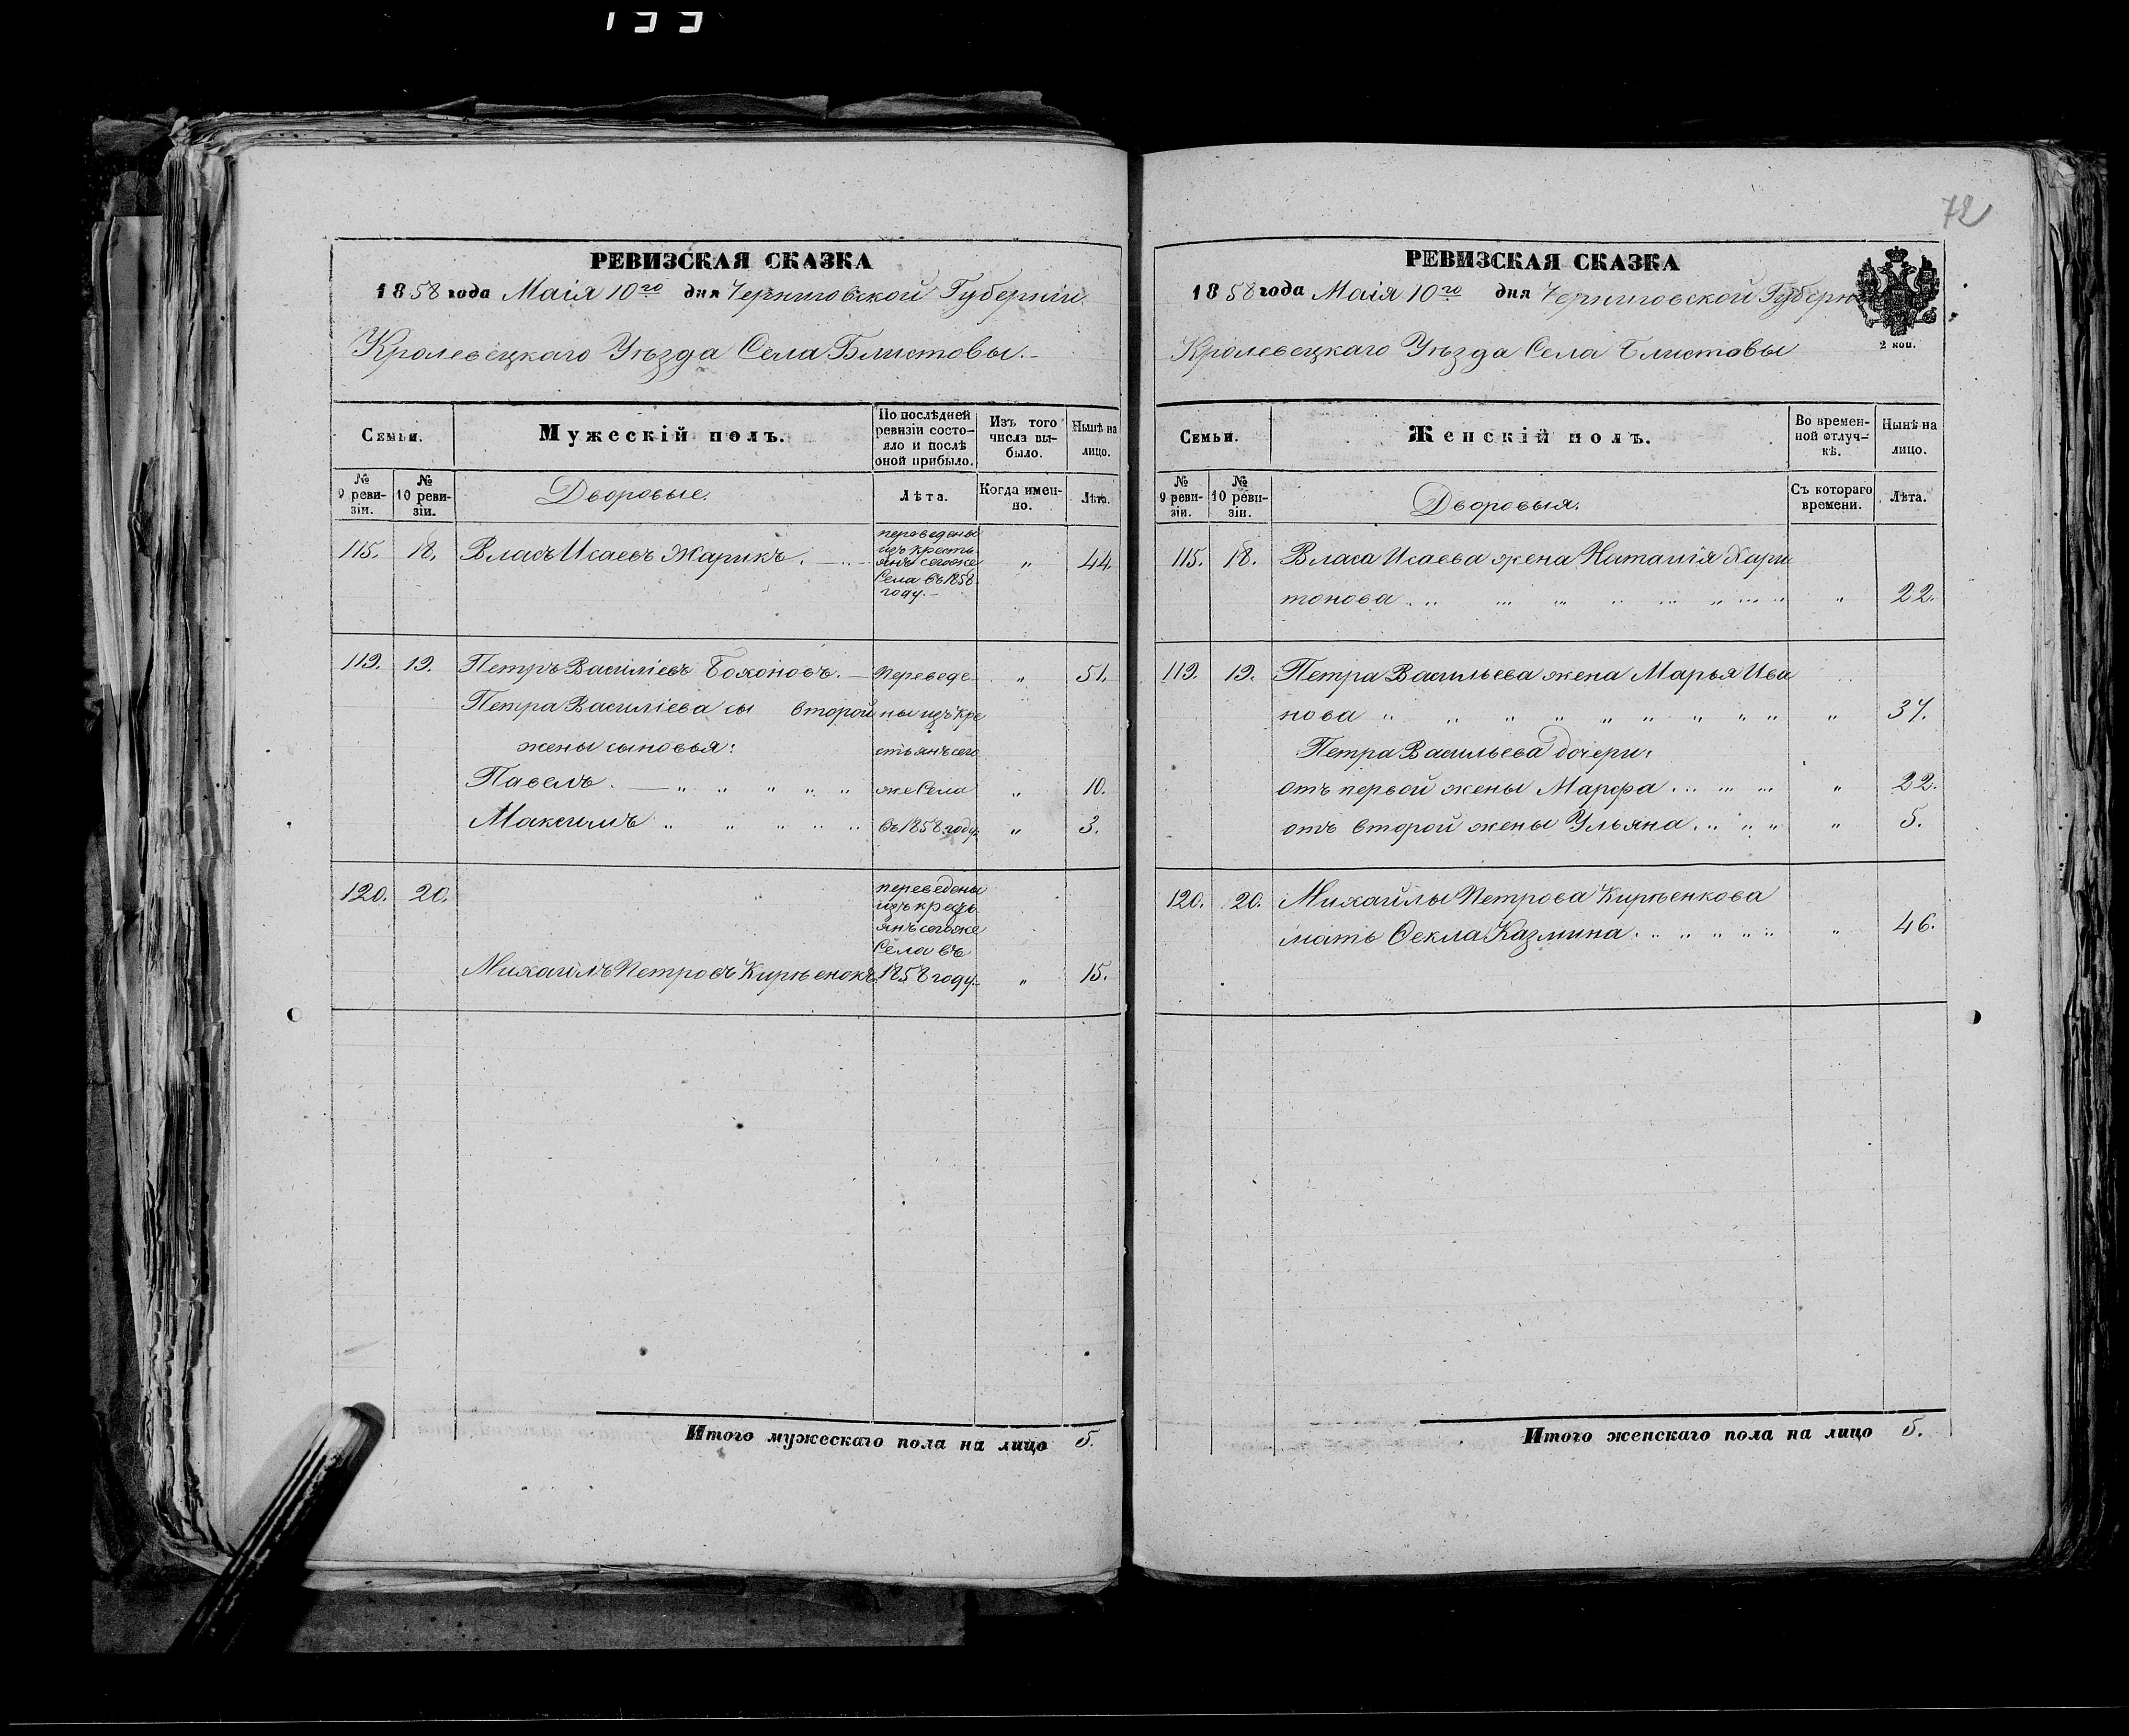 133
72
РЕВИЗСКАЯ СКАЗКА
1858 года Маія 10го дня Черниговской Губерніи
Кролевецкаго Уѣзда Села Блистовы.
Семьи.
Мужескій полъ.
По послѣдней ревизіи состо-
яло и послѣ
оной прибыло.
Изъ того
числа вы-
было.
Нынѣ на
лицо.
№
9 реви-
зіи.
№
10 реви-
зіи.
Дворовые.
Лѣта.
Когда имен-
но.
Лѣта.
115. 18. Власъ Исаевъ Жарикъ. переведены
изъ кресть
янъ сегоже
Села въ 1858
году. " 44.
119. 19. Петръ Василіевъ Бохоновъ. Переведе " 51.
Петра Василіева сы второй ны изъ кре
жены сыновья: стьянъ сего
Павелъ. " " " " " же Села " 10.
Максимъ " " " " " въ 1858 году. " 3.
120. 20. переведены
изъ кресть
янъ сегоже
Села въ
Михаилъ Петровъ Кирѣенокъ. 1858 году. " 15.
Итого мужескаго пола на лицо 5.
РЕВИЗСКАЯ СКАЗКА
1858 года Маія 10го дня Черниговской Губерніи
2 коп.
Кролевецкаго Уѣзда Села Блистовы
Семьи.
Женскій полъ.
Во времен-
ной отлуч-
кѣ.
Нынѣ на
лицо.
№
9 реви-
зіи.
№
10 реви-
зіи.
Дворовыя.
Съ котораго
времени.
Лѣта.
115. 18. Власа Исаева жена Наталія Хари
тонова " 22.
119. 19. Петра Васильева жена Марья Ива
нова " " " " " " " " " " 37.
Петра Васильева дочери:
отъ первой жены Марфа " 22.
отъ второй жены Ульяна " 5.
120. 20. Михайлы Петрова Кирѣенкова
мать Ѳекла Казмина " 46.
Итого женскаго пола на лицо 5.